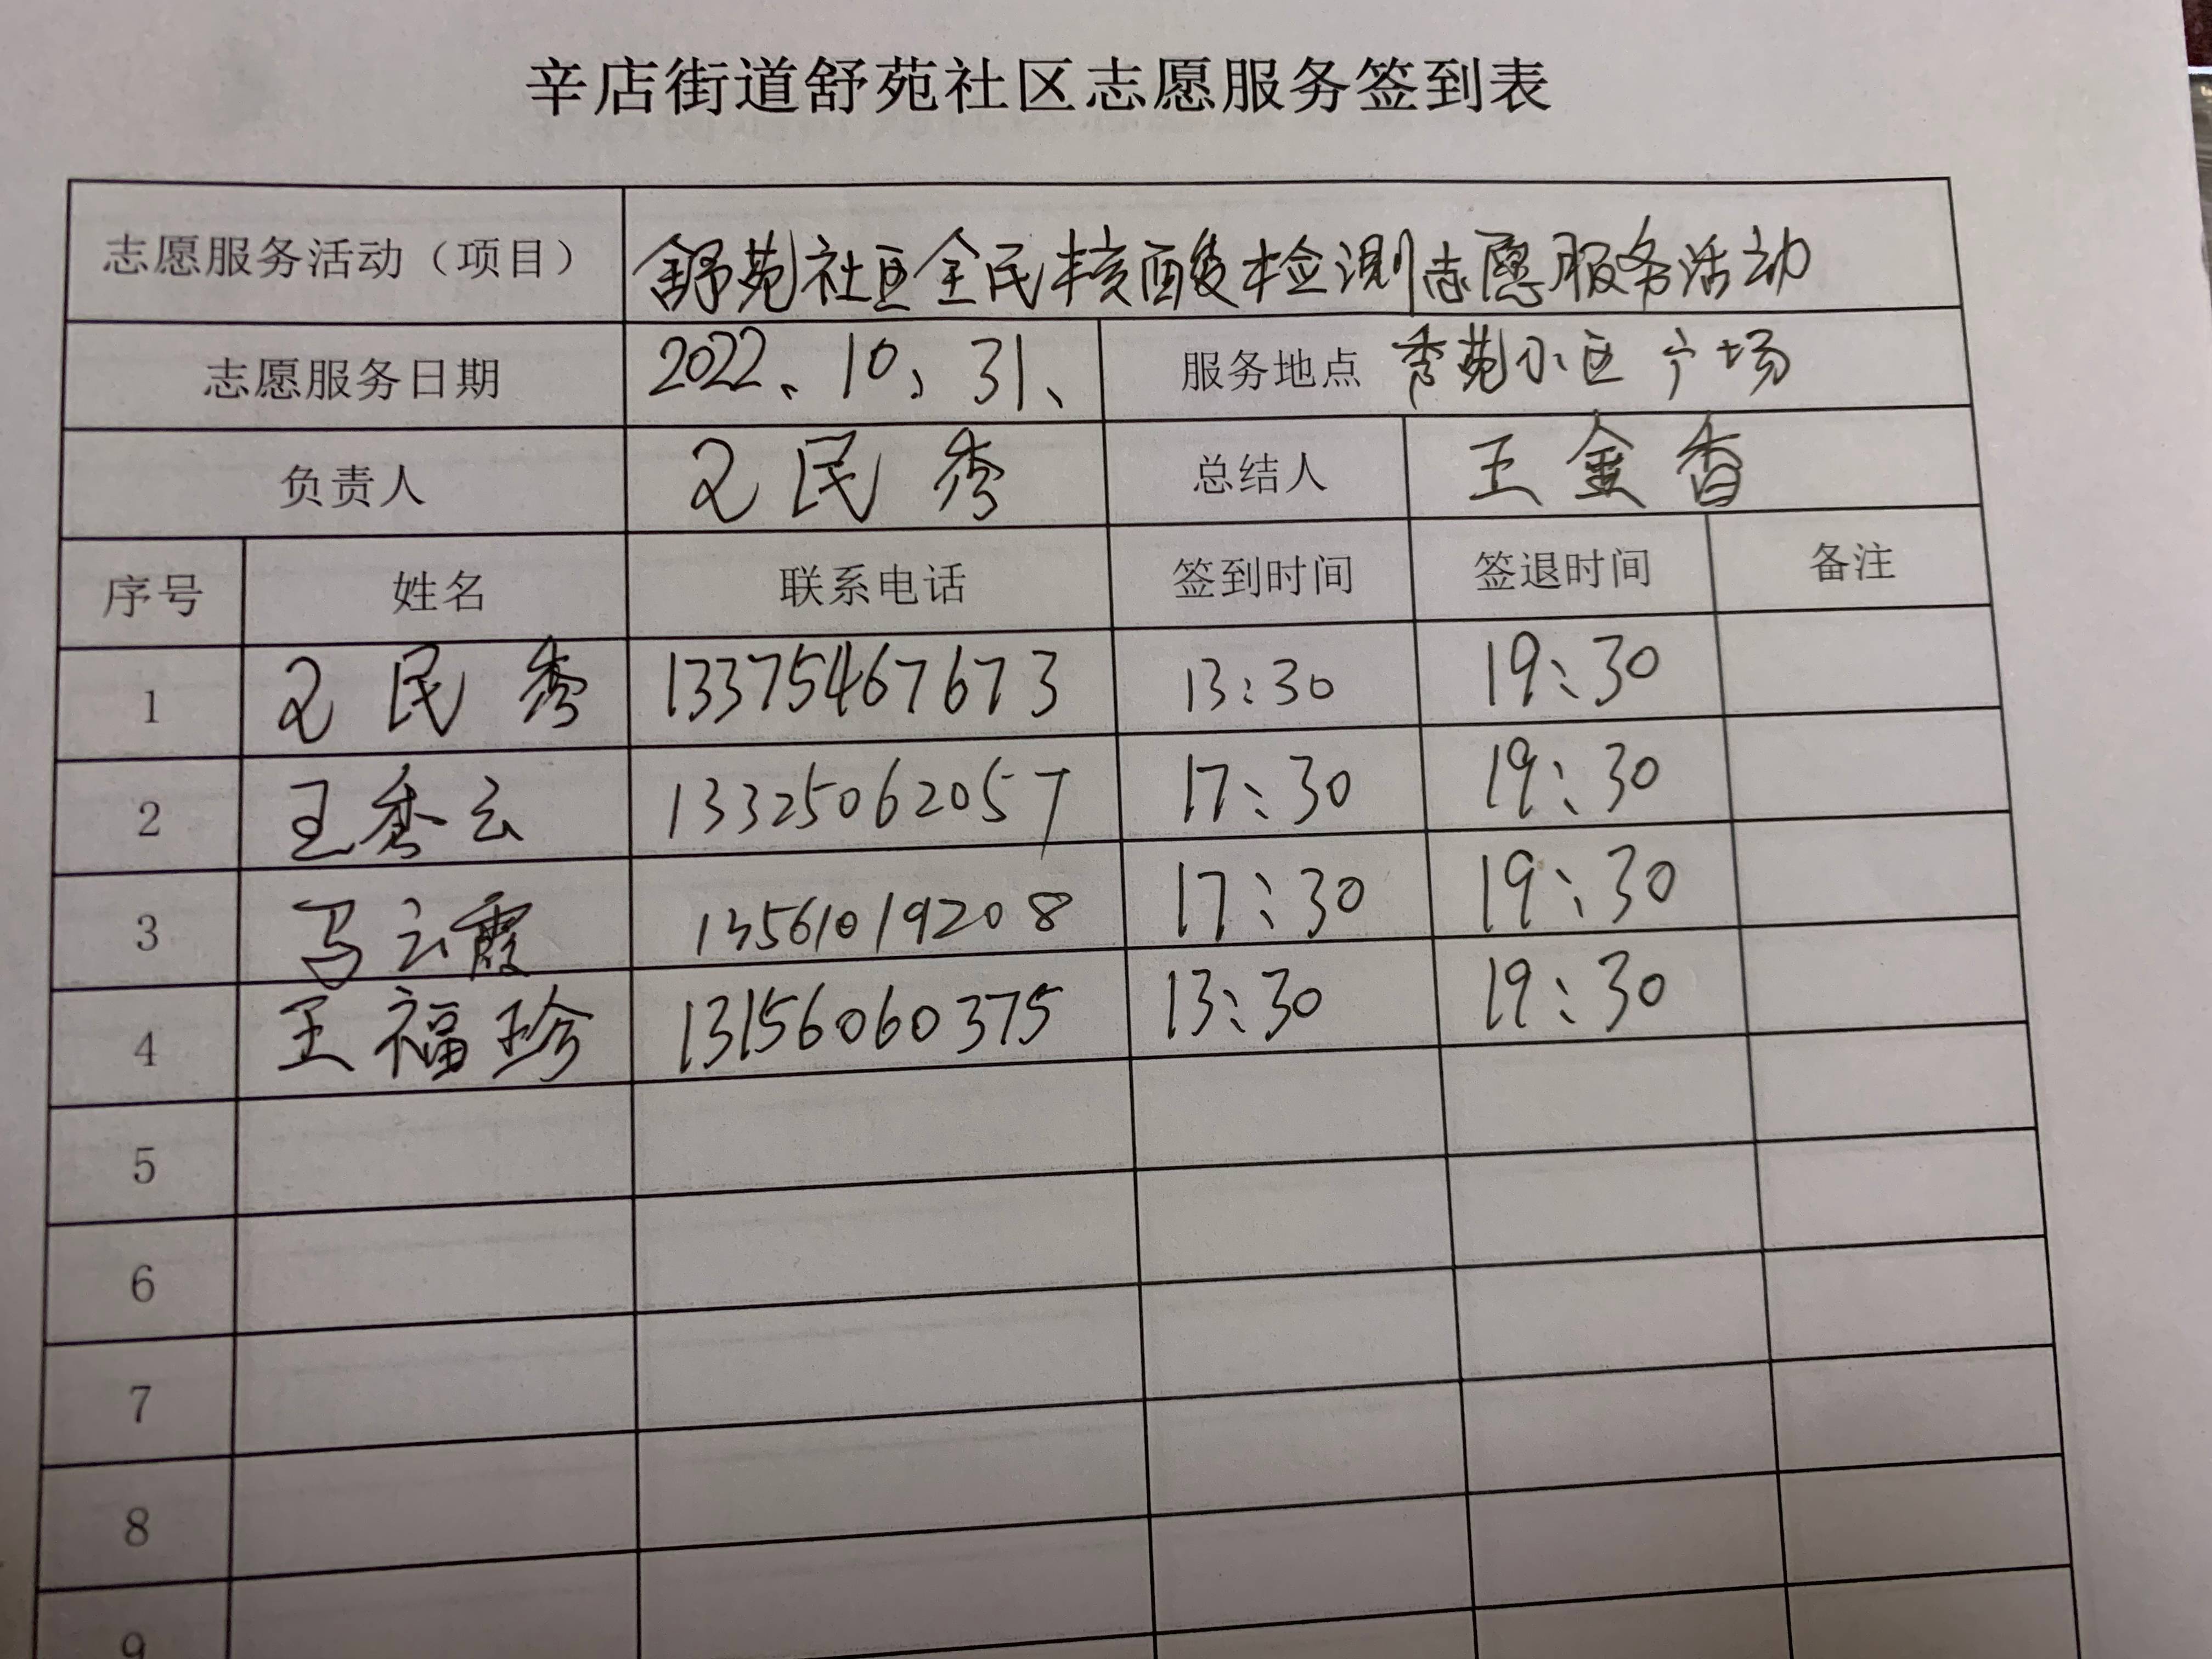 辛店街道舒苑社区志愿服务签到表
志愿服务活动（项目） 舒苑社区全民核酸检测志愿服务活动
志愿服务日期 2022、10、31、 服务地点 秀苑小区广场
负责人 民秀 总结人 王金香
序号 姓名 联系电话 签到时间 签退时间 备注
1 民秀 13375467673 13:30 19:30
2 王秀云 13325062057 17:30 19:30
3 马云霞 13561019208 17:30 19:30
4 王福珍 13156060375 13:30 19:30
5
6
7
8
9